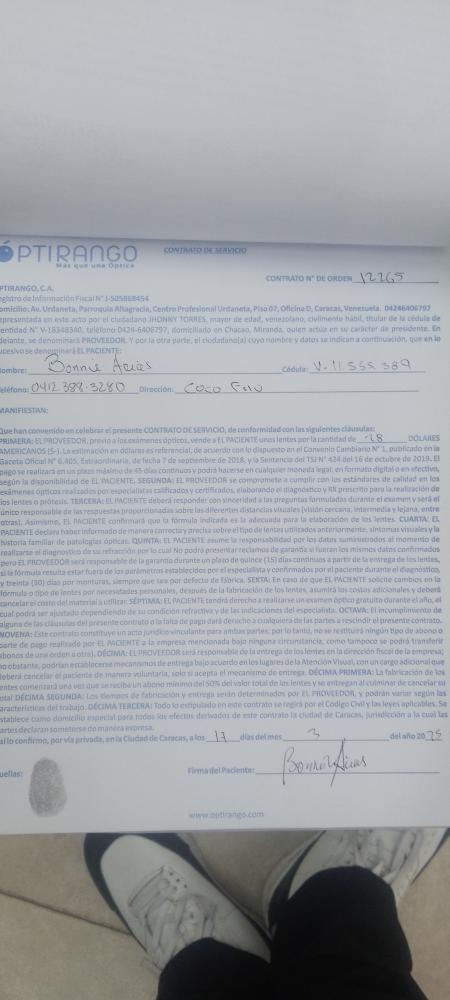 ÓPTIRANGO
Más que una Óptica
CONTRATO DE SERVICIO
CONTRATO N° DE ORDEN 12265
PTIRANGO, C.A.
egistro de Información Fiscal N° J-505868454
omicilio: Av. Urdaneta, Parroquia Altagracia, Centro Profesional Urdaneta, Piso 07, Oficina D, Caracas, Venezuela. 04246406797
epresentada en este acto por el ciudadano JHONNY TORRES, mayor de edad, venezolano, civilmente hábil, titular de la cédula de
entidad N° V-18348340, teléfono 0424-6406797, domiciliado en Chacao, Miranda, quien actúa en su carácter de presidente. En
delante, se denominará PROVEEDOR. Y por la otra parte, el ciudadano(a) cuyo nombre y datos se indican a continuación, que en lo
ucesivo se denominará EL PACIENTE:
ombre: Bonnie Arias Cédula: V-11.555.389
eléfono: 0412.388-3280 Dirección: Coco
MANIFIESTAN:
Que han convenido en celebrar el presente CONTRATO DE SERVICIO, de conformidad con las siguientes cláusulas:
PRIMERA: EL PROVEEDOR, previo a los exámenes ópticos, vende a EL PACIENTE unos lentes por la cantidad de 28 DÓLARES
AMERICANOS ($-). La estimación en dólares es referencial, de acuerdo con lo dispuesto en el Convenio Cambiario N° 1, publicado en la
Gaceta Oficial N° 6.405, Extraordinaria, de fecha 7 de septiembre de 2018, y la Sentencia del TSJ N° 424 del 16 de octubre de 2019. El
pago se realizará en un plazo máximo de 45 días continuos y podrá hacerse en cualquier moneda legal, en formato digital o en efectivo,
según la disponibilidad de EL PACIENTE. SEGUNDA: EL PROVEEDOR se compromete a cumplir con los estándares de calidad en los
exámenes ópticos realizados por especialistas calificados y certificados, elaborando el diagnóstico y RX prescrito para la realización de
los lentes o prótesis. TERCERA: EL PACIENTE deberá responder con sinceridad a las preguntas formuladas durante el examen y será el
único responsable de las respuestas proporcionadas sobre las diferentes distancias visuales (visión cercana, intermedia y lejana, entre
otras). Asimismo, EL PACIENTE confirmará que la fórmula indicada es la adecuada para la elaboración de los lentes. CUARTA: EL
PACIENTE declara haber informado de manera correcta y precisa sobre el tipo de lentes utilizados anteriormente, síntomas visuales y la
historia familiar de patologías ópticas. QUINTA: EL PACIENTE asume la responsabilidad por los datos suministrados al momento de
realizarse el diagnostico de su refracción por lo cual No podrá presentar reclamos de garantía si fueran los mismos datos confirmados
pero EL PROVEEDOR será responsable de la garantía durante un plazo de quince (15) días continuos a partir de la entrega de los lentes,
si la fórmula resulta estar fuera de los parámetros establecidos por el especialista y confirmados por el paciente durante el diagnóstico,
y treinta (30) días por monturas, siempre que sea por defecto de fábrica. SEXTA: En caso de que EL PACIENTE solicite cambios en la
fórmula o tipo de lentes por necesidades personales, después de la fabricación de los lentes, asumirá los costos adicionales y deberá
cancelar el costo del material a utilizar. SÉPTIMA: EL PACIENTE tendrá derecho a realizarse un examen óptico gratuito durante el año, el
cual podrá ser ajustado dependiendo de su condición refractiva y de las indicaciones del especialista. OCTAVA: El incumplimiento de
alguna de las cláusulas del presente contrato o la falta de pago dará derecho a cualquiera de las partes a rescindir el presente contrato.
NOVENA: Este contrato constituye un acto jurídico vinculante para ambas partes; por lo tanto, no se restituirá ningún tipo de abono o
parte de pago realizado por EL PACIENTE a la empresa mencionada bajo ninguna circunstancia, como tampoco se podrá transferir
abonos de una orden a otra). DÉCIMA: EL PROVEEDOR será responsable de la entrega de los lentes en la dirección fiscal de la empresa;
no obstante, podrían establecerse mecanismos de entrega bajo acuerdo en los lugares de la Atención Visual, con un cargo adicional que
deberá cancelar el paciente de manera voluntaria, solo si acepta el mecanismo de entrega. DÉCIMA PRIMERA: La fabricación de los
entes comenzará una vez que se reciba un abono mínimo del 50% del valor total de los lentes y se entregan al culminar de cancelar su
otal DÉCIMA SEGUNDA: Los tiempos de fabricación y entrega serán determinados por EL PROVEEDOR, y podrán variar según las
aracterísticas del trabajo. DÉCIMA TERCERA: Todo lo estipulado en este contrato se regirá por el Código Civil y las leyes aplicables. Se
stablece como domicilio especial para todos los efectos derivados de este contrato la ciudad de Caracas, jurisdicción a la cual las
artes declaran someterse de manera expresa.
sí lo confirmo, por vía privada, en la Ciudad de Caracas, a los 17 días del mes 3 del año 2025
uellas: Firma del Paciente: Bonnie Arias
www.optirango.com